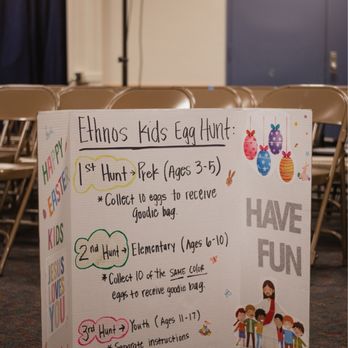 Ethnos Kids Egg Hunt:
1st Hunt → PreK (Ages 3-5)
* Collect 10 eggs to receive
goodie bag.
2nd Hunt → Elementary (Ages 6-10)
* Collect 10 of the SAME COLOR
eggs to receive goodie bag.
3rd Hunt → Youth (Ages 11-17)
* Separate instructions
HAPPY
EASTER
KIDS
JESUS
LOVES
YOU!
HAVE
FUN